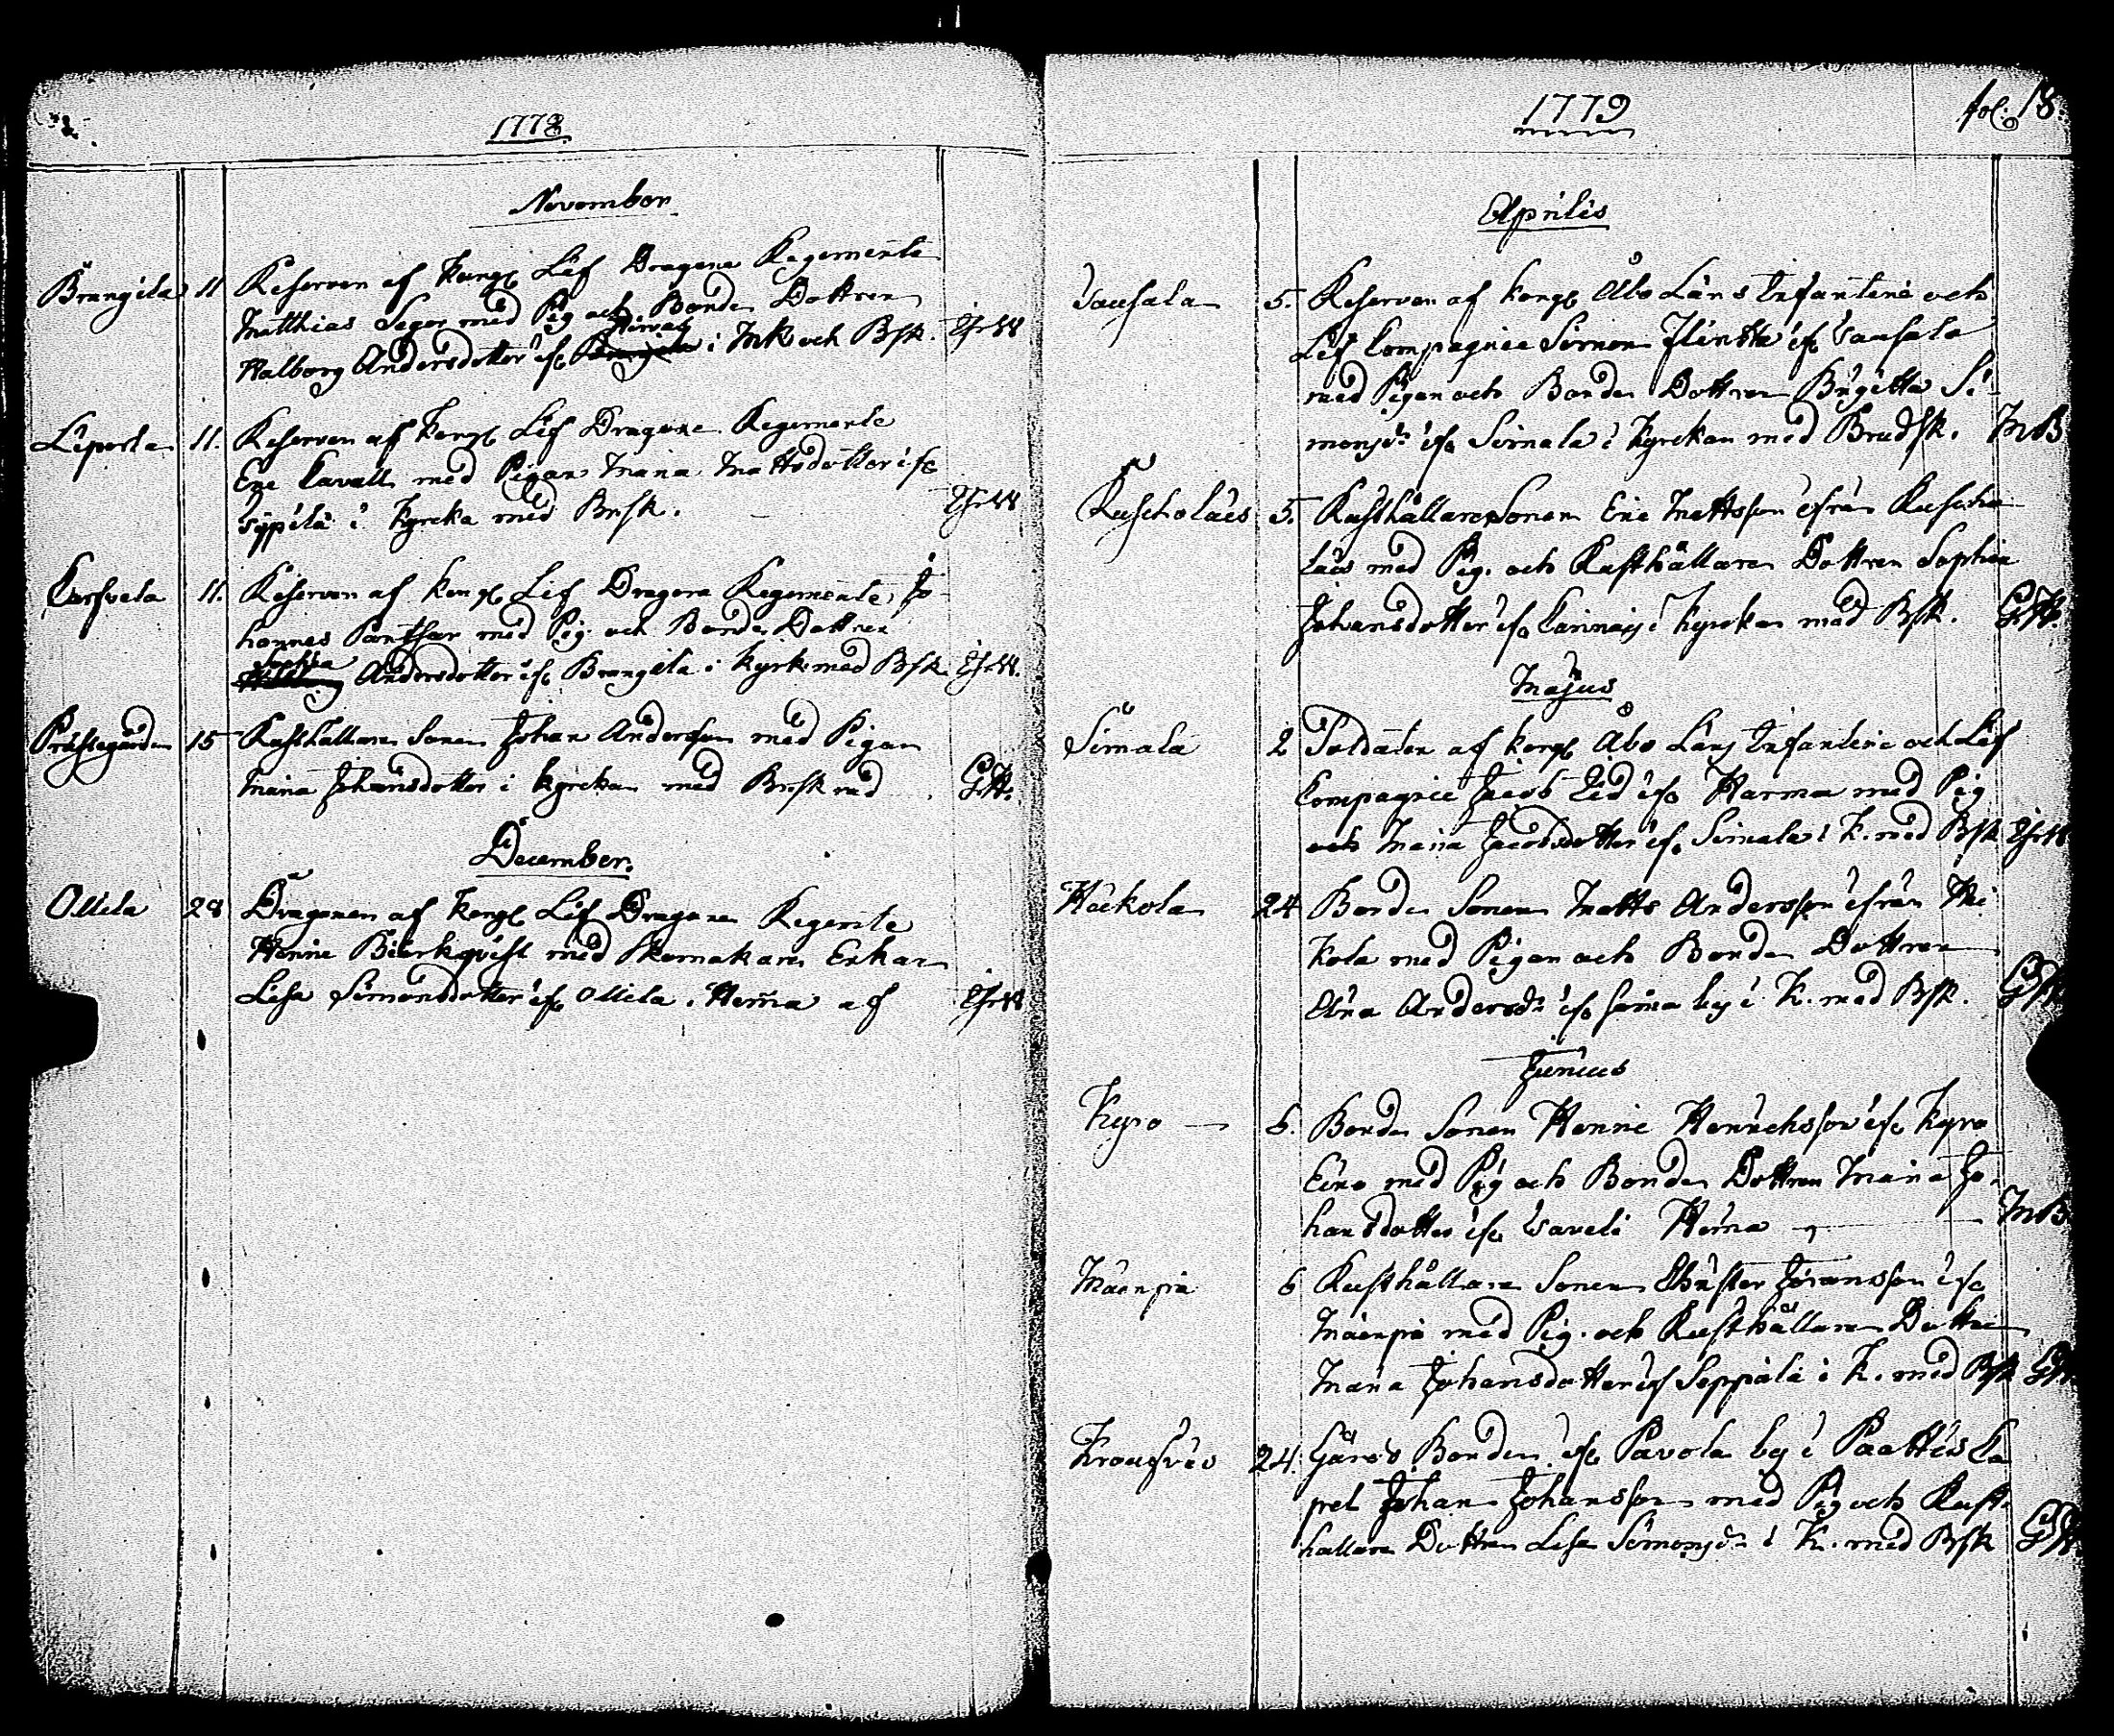 1778.
November
Brungila 11 Reserven af Kongl Lif Dragone Regemente
Matthias Seger med Pig och Bonde Dottren
Walborg Andersdotter if i och Bsk.
Leporla 11. Reserven af Kongl Lif Dragone Regemente
Eric Cavall med Pigan Maria Mattsdotter ifr
Sÿpilä i Kyrcka med Brsk.
11. Reserven af Kongl Lif Dragone Regemente Jo-
hannes Panthar med Pig och Bonde Dottren
Sophia Andersdotter if Brungila i Kyrk med Bsk.
Prästegården 15 Rusthållare Sonen Johan Andersson med Pigan
Maria Johansdotter i Kyrckan med Brsk rud G.H.
December.
Ollila 28 Dragonen af Kongl Lif Dragone Regemte
Henric Biörkqvist med Skomakare Enkan
Lisa Simonsdotter if Ollila. Hema af
1779 fol. 18.
Aprilis
5. Reserven af Kongl Åbo Läns Infanterie och
Lif Compagnie Simon Flintta if
med Pigan och Bonde Dottren Brigitta Si-
monsdr if Simala i Kyrckan med Brudsk. MB
5. Rusthållare Sonen Eric Mattsson ifrån
med Pig. och Rusthållare Dottren Sophia
Johansdotter if i Kyrckan med Bsk. G.H.
Majus
Simala 2 Soldaten af Kongl Åbo Läns Infanterie och Lif
Compagnie Jacob Lid if Karma med Pig
och Maria Jacobsdotter if Simala i K. med Bsk
24 Bonde Sonen Matts Andersson ifrån
kola med Pigan och Bonde Dottren
Andersdr if sama by i K. med Bsk. GH
Junius
Kyro 6. Bonde Sonen Henric Henrichsson if Kyro
med Pig och Bonde Dottren Maria Jo-
hansdotter if Hema MB
Mäenpä 6 Rusthållare Sonen Christer Göransson ifr
Mäenpä med Pig. och Rusthållare Dottren
Maria Johansdotter if Seppälä i K. med Bsk GH
24. Gårds Bonden if Pavola by i Paattis Ca
pel Johan Johansson med Pig och Rust-
hållare Dottren Lisa Simonsdr i K. med Bsk GH